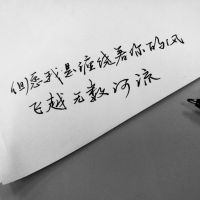 但愿我是缠绕着你的风
飞越无数河流